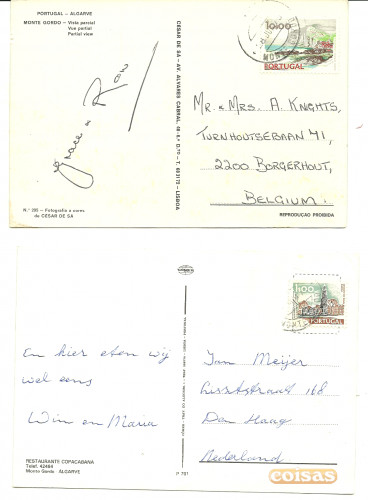 PORTUGAL - ALGARVE
MONTE GORDO - Vista parcial
Vue partial
Partial view
Grace & Ron
N.º 295 - Fotografia a cores
de CESAR DE SÁ
CESAR DE SÁ - AV. ALVARES CABRAL
LISBOA
10$00
PORTUGAL
Mr. & Mrs. A. Knights,
Turnhoutsebaan 41,
2200 Borgerhout,
Belgium.
REPRODUÇÃO PROIBIDA
En hier eten wij
wel eens
Wim en Maria
RESTAURANTE COPACABANA
Telef. 42464
Monte Gordo ALGARVE
P 791
1$00
PORTUGAL
Jan Meijer
Lisztstraat 168
Den Haag
Nederland
coisas